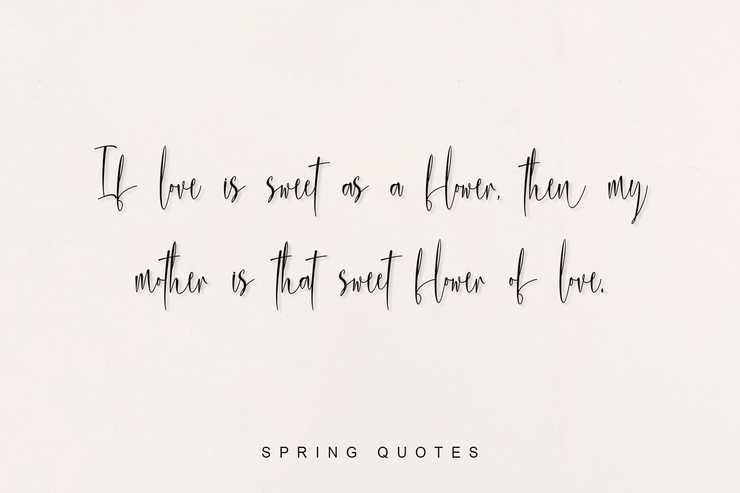 If love is sweet as a flower, then my
mother is that sweet flower of love.
SPRING QUOTES